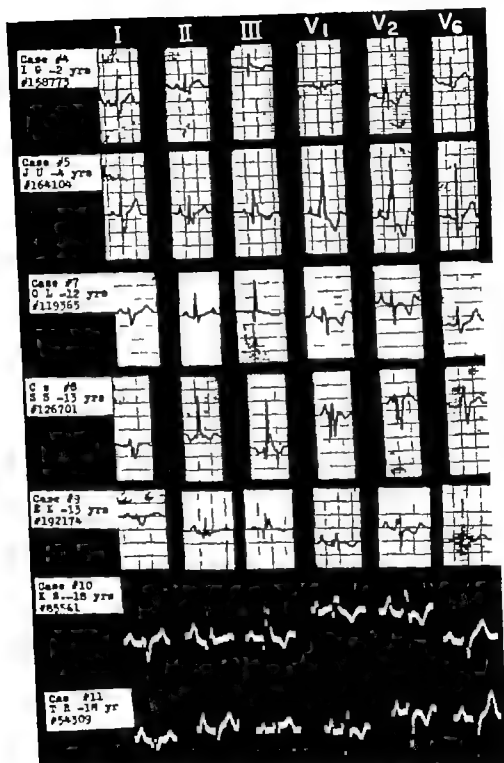 I II III V1 V2 V6
Case #4
I G -2 yrs
#158773
Case #5
J U -4 yrs
#164104
Case #7
O L -12 yrs
#119365
C s #8
S S -13 yrs
#126701
Case #9
E K -13 yrs
#192174
Case #10
K S -18 yrs
#85561
Cas #11
T R -18 yr
#54309